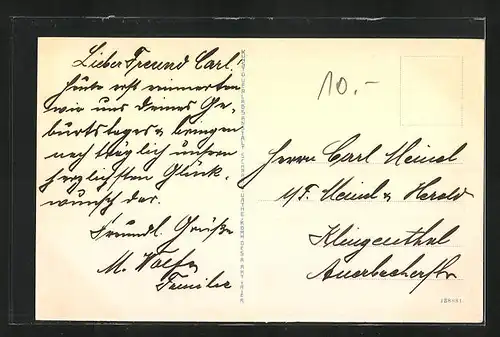 Lieber Freund Carl!
Heute erst erinnerten
wir uns Deines Ge-
burtstages & bringen
nachträglich unsern
herzlichsten Glück-
wunsch dar.
Freundl. Grüße
M. Wolf &
Familie
10.-
Herrn Carl Meinel
i/F. Meinel & Herold
Klingenthal
Auerbacherstr